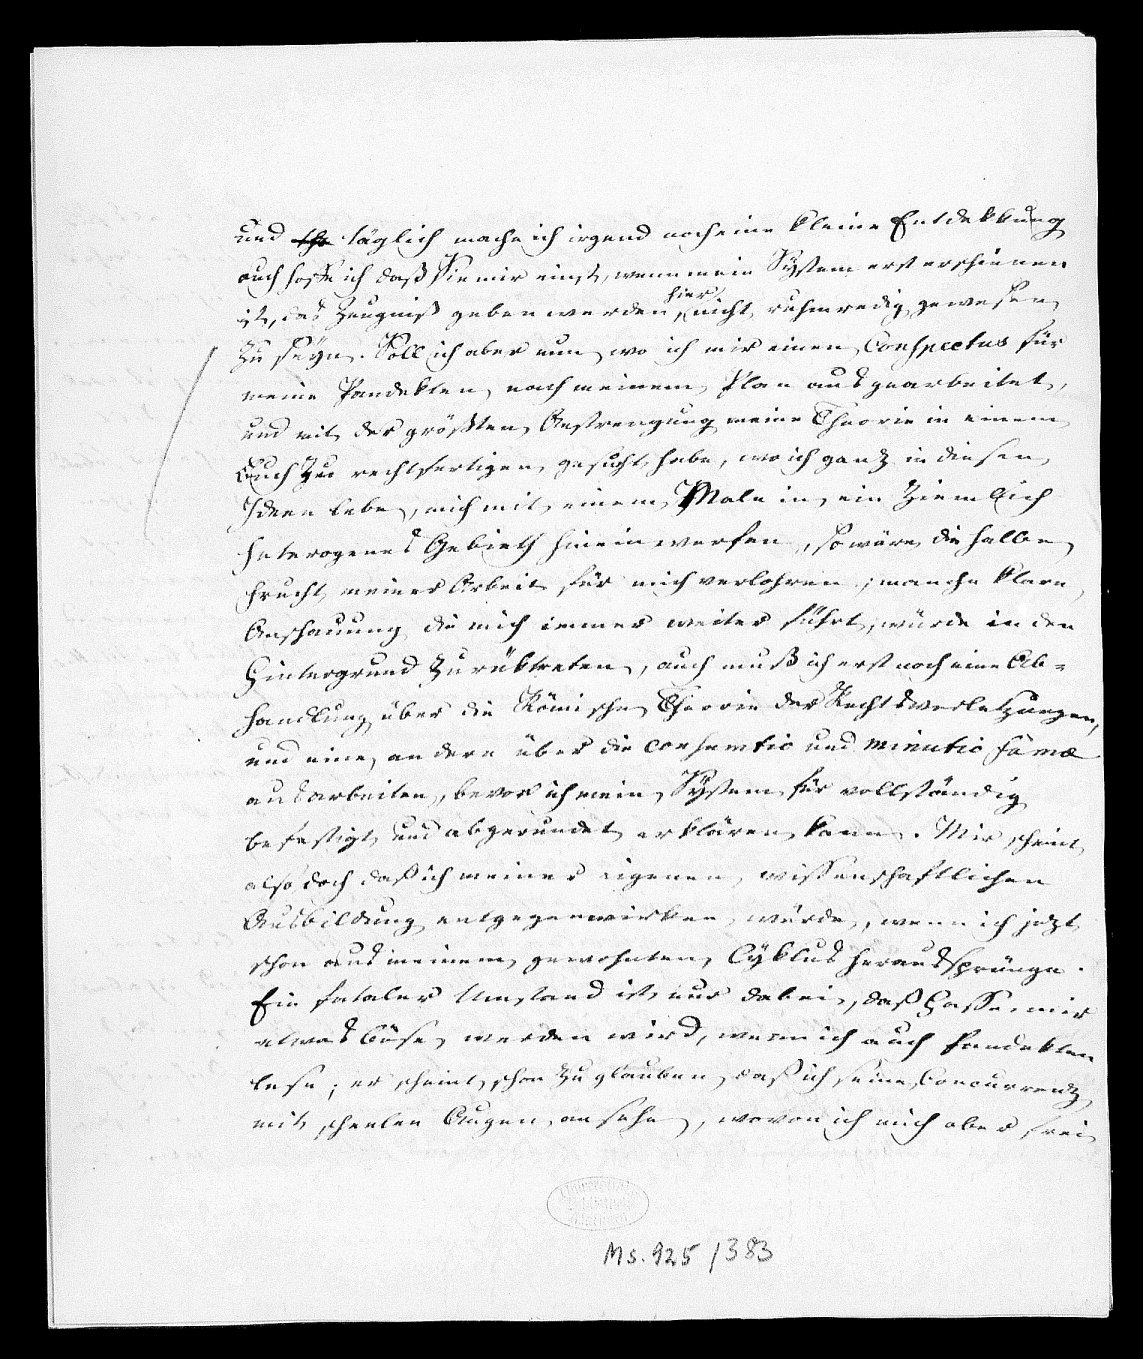 und täglich mache ich irgend noch eine kleine Entdekkung
auch hoffe ich daß Sie mir einst, wenn mein System erst erschienen
ist, das Zeugniß geben werden, hier nicht ruhmredig gewesen
zu seyn. Soll ich aber nun, wo ich mir einen Conspectus für
meine Pandekten, nach meinem Plan ausgearbeitet,
und mit der größten Anstrengung meine Theorie in einem
Buch zu rechtfertigen gesucht habe, wo ich ganz in diesen
Ideen lebe, mich mit einem Male in ein ziemlich
heterogenes Gebieth hineinwerfen, so wäre die halbe
Frucht meiner Arbeit für mich verlohren; manche klare
Anschauung die mich immer weiter führt, würde in den
Hintergrund zurüktreten, auch muß ich erst noch eine Ab=
handlung über die Römische Theorie der Rechtsverletzungen,
und eine andere über die consumtio und minutio famae
ausarbeiten, bevor ich mein System für vollständig
befestigt und abgerundet erklären kann. Mir scheint
also doch daß ich meiner eigenen wissenschaftlichen
Ausbildung entgegenwirken würde, wenn ich jetzt
schon aus meinem gewohnten Cyklus herausspränge.
Ein fataler Umstand ist nur dabei, daß Hasse mir
etwas böse werden wird, wenn ich auch Pandekten
lese; er scheint schon zu glauben, daß ich seine Concurrenz
mit scheelen Augen ansehe, wovon ich mich aber frei
Ms. 925/383